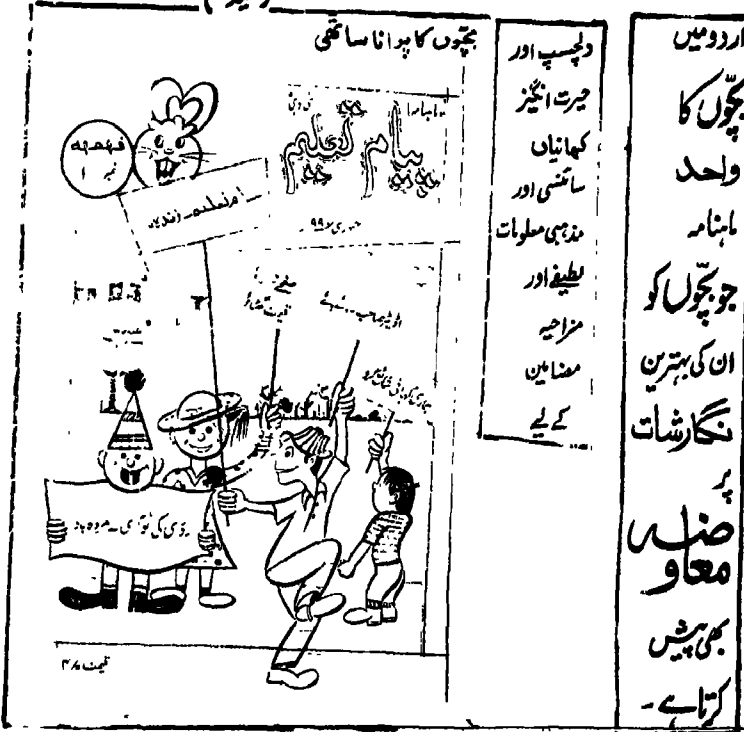 اردو میں
بچّوں کا
واحد
ماہنامہ
جو بچّوں کو
ان کی بہترین
نگارشات
پر
معاوضہ
بھی پیش
کرتا ہے۔
دلچسپ اور
حیرت انگیز
کہانیاں
سائنسی اور
مذہبی معلومات
لطیفے اور
مزاحیہ
مضامین
کے لیے
بچّوں کا پرانا ساتھی
ماہنامہ
پیام تعلیم
قہقہہ
نمبر ۱
ردّی کی ٹوکری۔ مردہ باد
قیمت